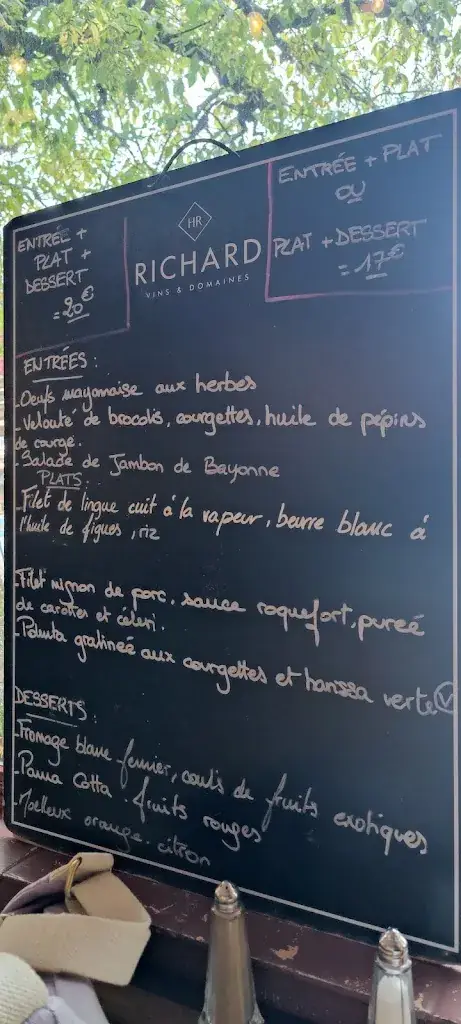 ENTRÉE +
PLAT +
DESSERT
= 20€
HR
RICHARD
VINS & DOMAINES
ENTRÉE + PLAT
OU
PLAT + DESSERT
= 17€
ENTRÉES :
- Oeufs mayonnaise aux herbes
- Velouté de brocolis, courgettes, huile de pépins
de courge.
- Salade de Jambon de Bayonne
PLATS :
- Filet de lingue cuit à la vapeur, beurre blanc à
l'huile de figues, riz
- Filet mignon de porc, sauce roquefort, pureé
de carottes et céleri.
- Polenta gratinée aux courgettes et harissa verte V
DESSERTS :
- Fromage blanc fermier, coulis de fruits exotiques
- Panna Cotta . fruits rouges
- Moelleux orange . citron